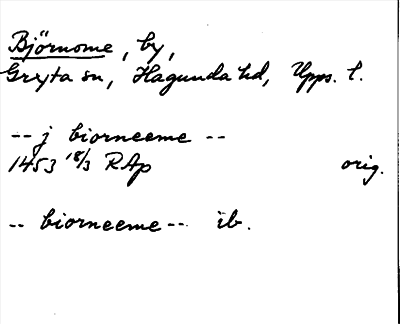 Björnome, by,
Gryta sn, Hagunda hd, Upps. l.
-- j biorneeme --
1453 18/3 RAp orig.
-- biorneeme -- ib.